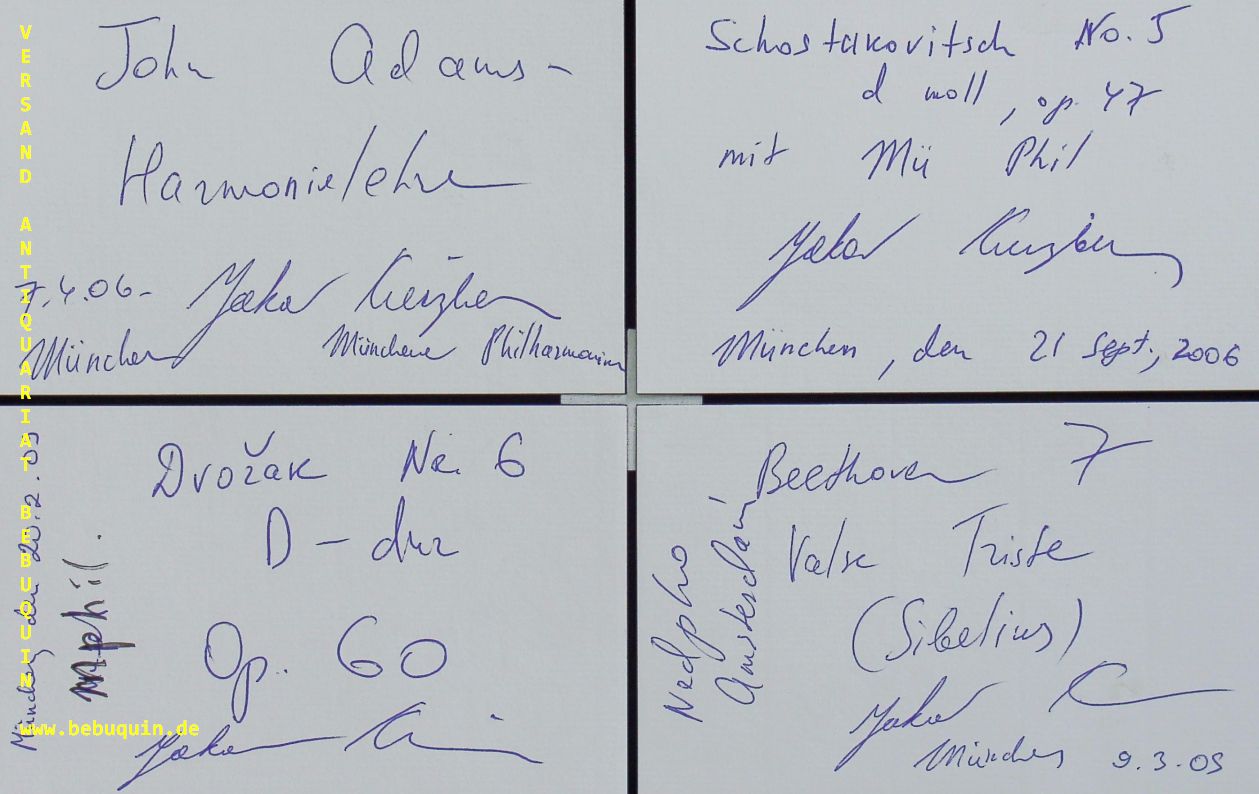 VERSAND ANTIQUARIAT BEBUQUIN
www.bebuquin.de
John Adams -
Harmonielehre
7.4.06 -
Yakov Kreizberg
München
Münchene Philharmoniker
Schostakovitsch No. 5
d moll, op. 47
mit Mü Phil
Yakov Kreizberg
München, den 21 Sept., 2006
Dvořák Nr. 6
D - dur
Op. 60
Yakov
München den 20.2.09
Mphil.
Beethoven 7
Valse Triste
(Sibelius)
Yakov K
München 9.3.09
Nedpho
Amsterdam